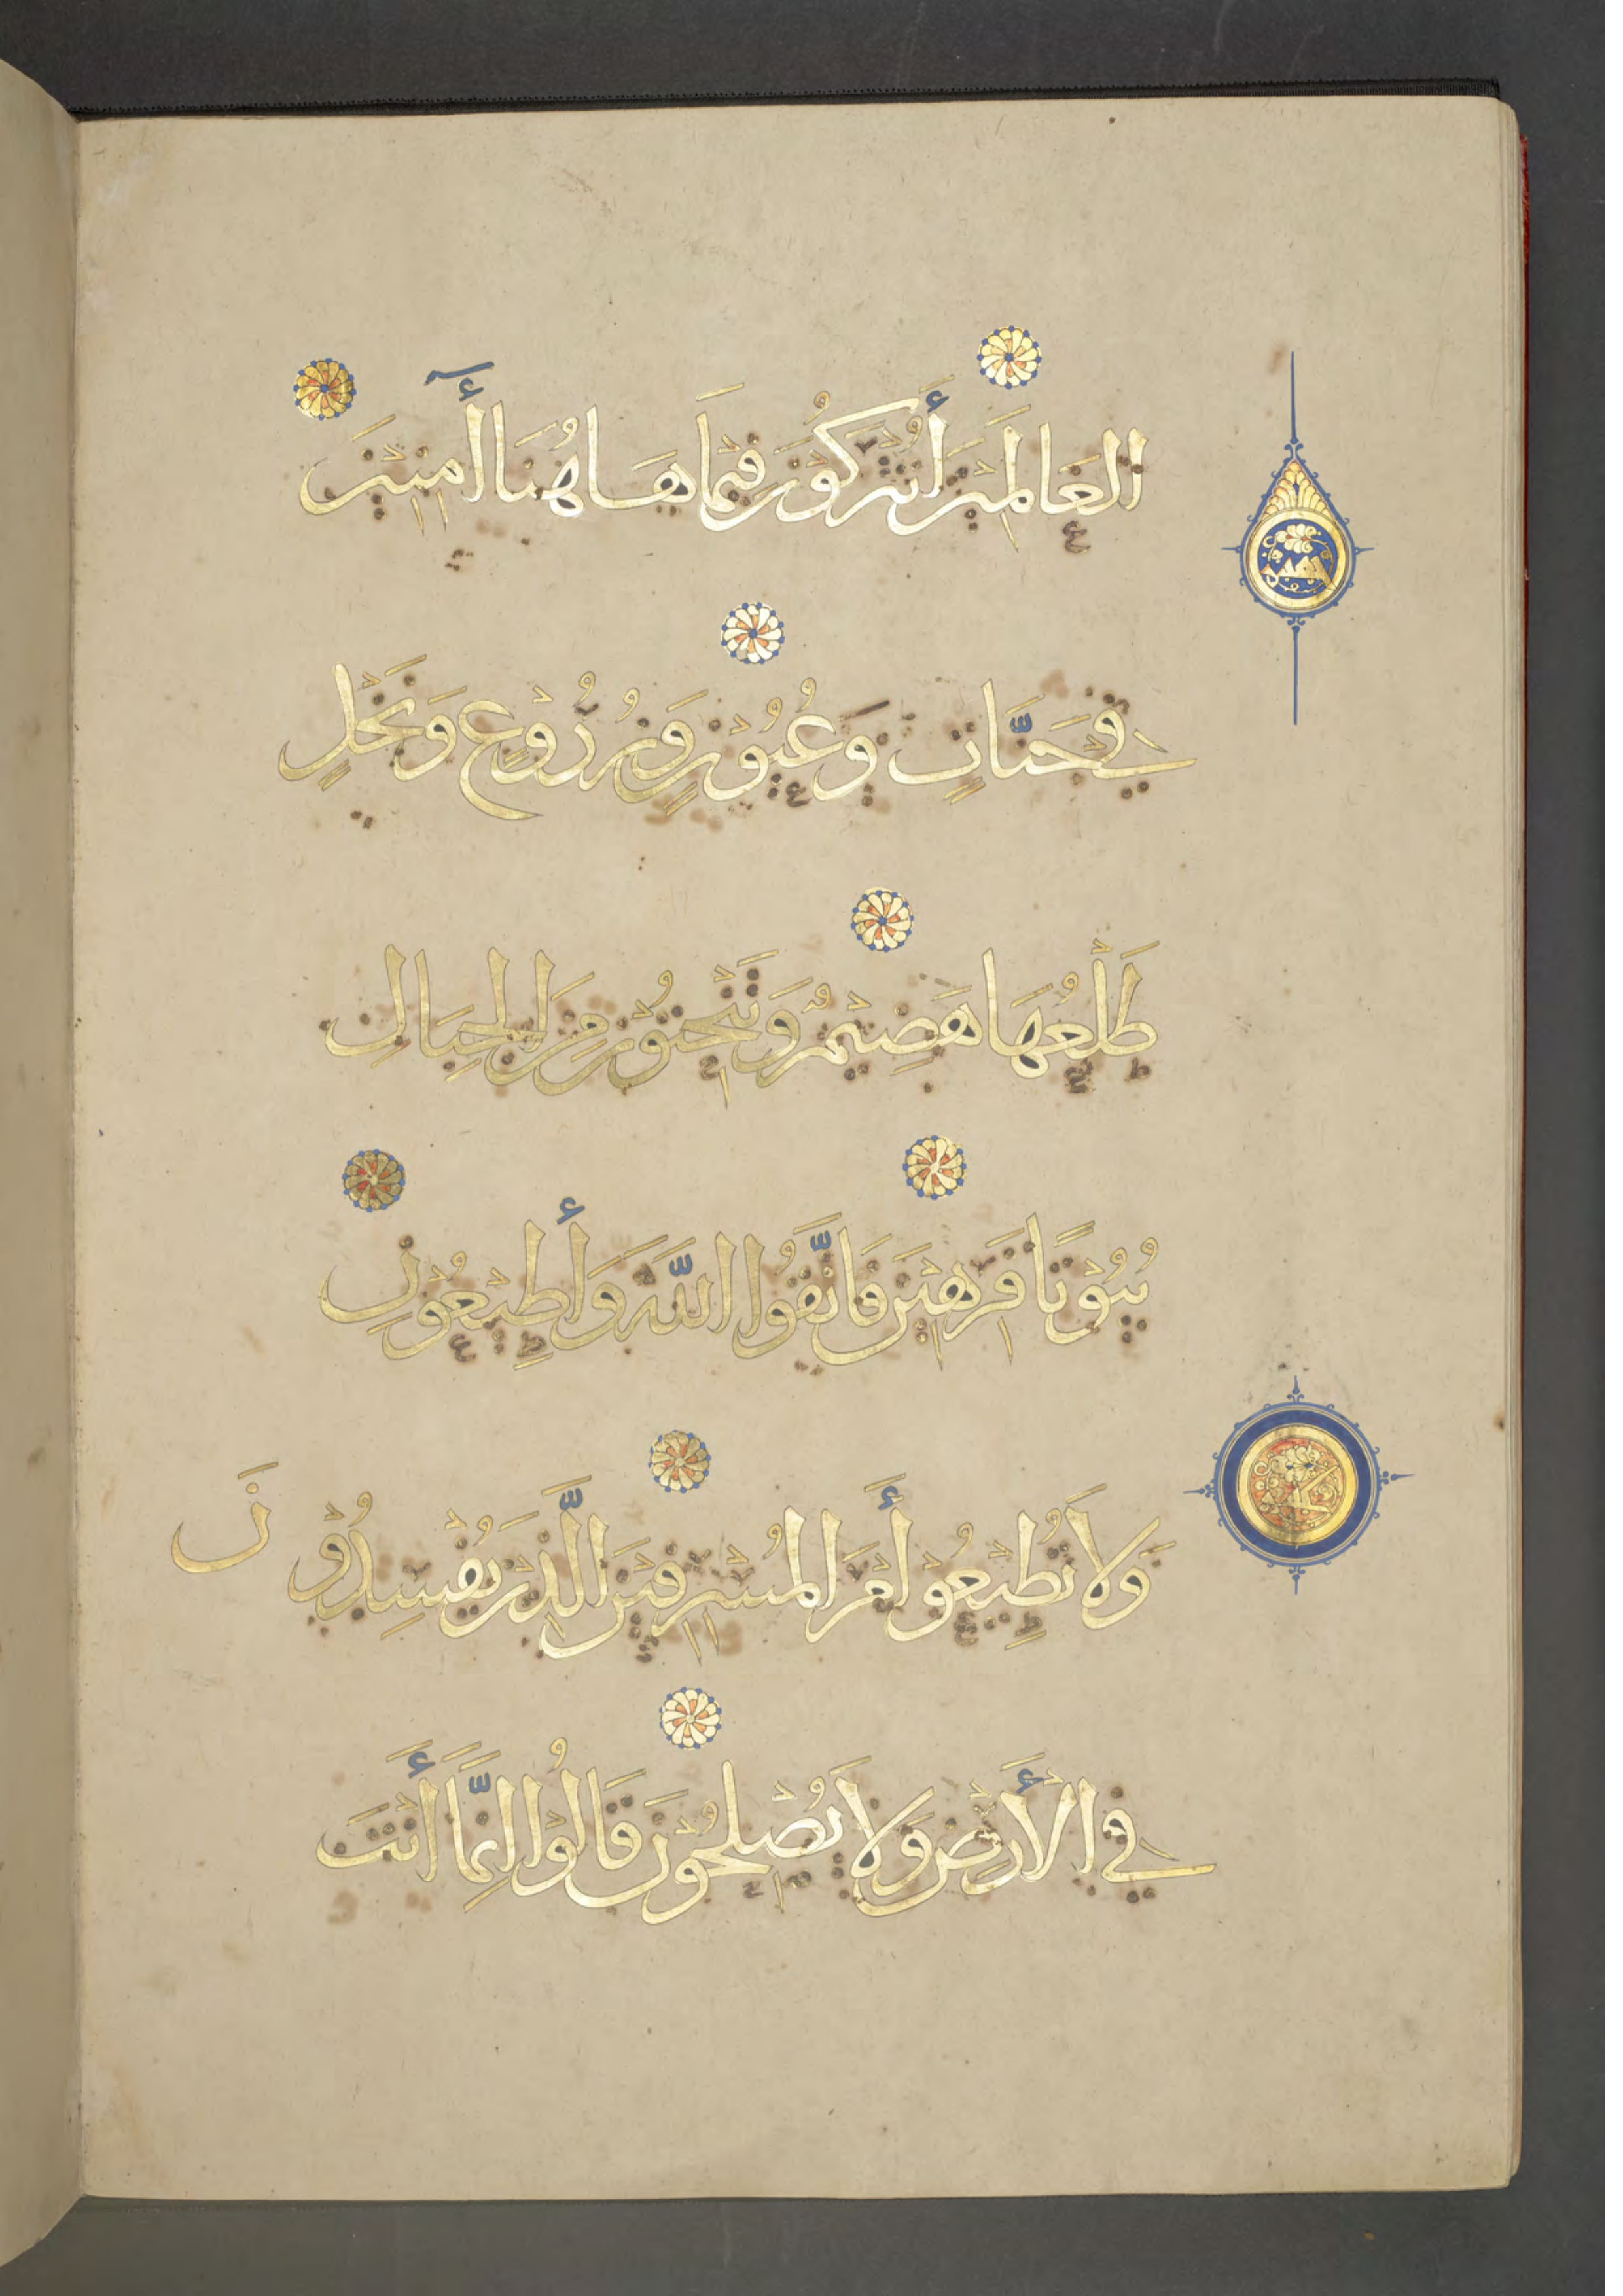 العَالَمِينَ أَتُتْرَكُونَ فِيمَا هَاهُنَا أٓمِنِينَ
فِي جَنَّاتٍ وَعُيُوْنٍ وَزُرُوْعٍ وَنَخْلٍ
طَلْعُهَا هَضِيْمٌ وَتَنْحِتُوْنَ مِنَ الْجِبَالِ
بُيُوْتًا فَرِهِيْنَ فَاتَّقُوا اللَّهَ وَأَطِيْعُوْنِ
وَلَا تُطِيْعُوْا أَمْرَ الْمُسْرِفِيْنَ الَّذِيْنَ يُفْسِدُوْنَ
فِي الْأَرْضِ وَلَا يُصْلِحُوْنَ قَالُوْا إِنَّمَا أَنْتَ